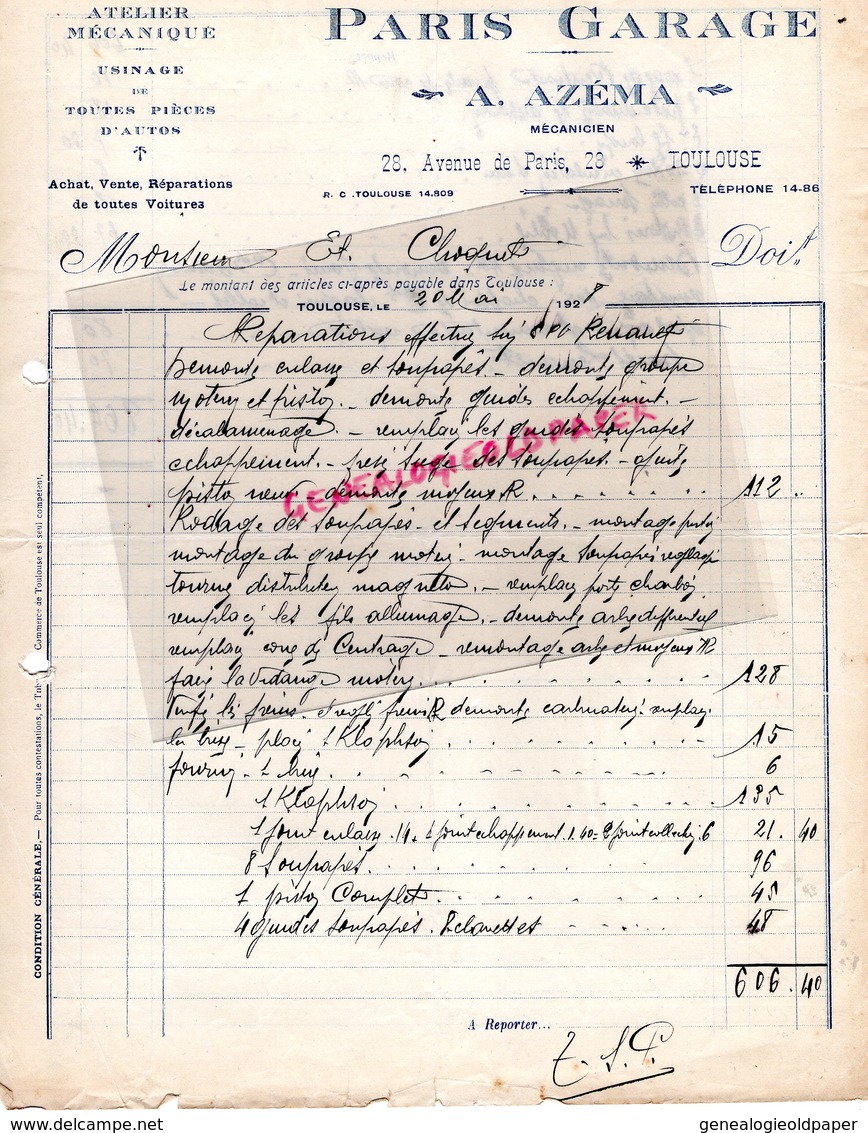 ATELIER
MÉCANIQUE
USINAGE
DE
TOUTES PIÈCES
D'AUTOS
Achat, Vente, Réparations
de toutes Voitures
PARIS GARAGE
A. AZÉMA
MÉCANICIEN
28, Avenue de Paris, 28 TOULOUSE
R. C. TOULOUSE 14.809
TÉLÉPHONE 14-86
Monsieur Et. Choquet Doit
Le montant des articles ci-après payable dans Toulouse :
TOULOUSE, LE 20 Mai 1928
Reparations effectuy sur Renault
Demonte culasse et soupapes - demonte groupe
moteur et piston - demonte guides echappement. -
décalaminage. - remplacé les guides soupapes
echappement. - fresé siege des soupapes. - ajuité
piston neuf - démonté moyeux R. 112 "
Rodage des soupapes - et segments. - montage piston
montage du groupe moteur - montage soupapes reglage
tourné distributeur magneto. - remplacé porte charbon
remplacé les fils allumage. - demonté arbre differentiel
remplacé cone de Centrage - remontage arbre et moyeux R
faire la vidange moteur 128
freins demonté carburateur
1 Klaphson 15
fourni 1 6
1 Klaphson 135
1 joint culasse 14 + 1 joint echappement 1.40 = 2 joint collecteur 6 21. 40
8 Soupapes 96
1 piston Complet 45
4 guides soupapes. 8 clavettes 48
606. 40
A Reporter...
T. S. P.
CONDITION GÉNÉRALE. — Pour toutes contestations, le Tribunal Commerce de Toulouse est seul compétent.
GENEALOGIEOLDPAPER
delcampe.net
genealogieoldpaper